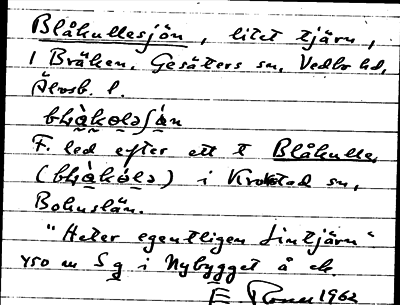 Blåkullesjön, litet tjärn,
i Bräken, Gesäters sn, Vedbo hd,
Älvsb. l.
F. led efter ett t Blåkulle
i Krokstad sn,
Bohuslän.
"Heter egentligen Lintjärn"
450 m S g i Nybygget å ek.
1962